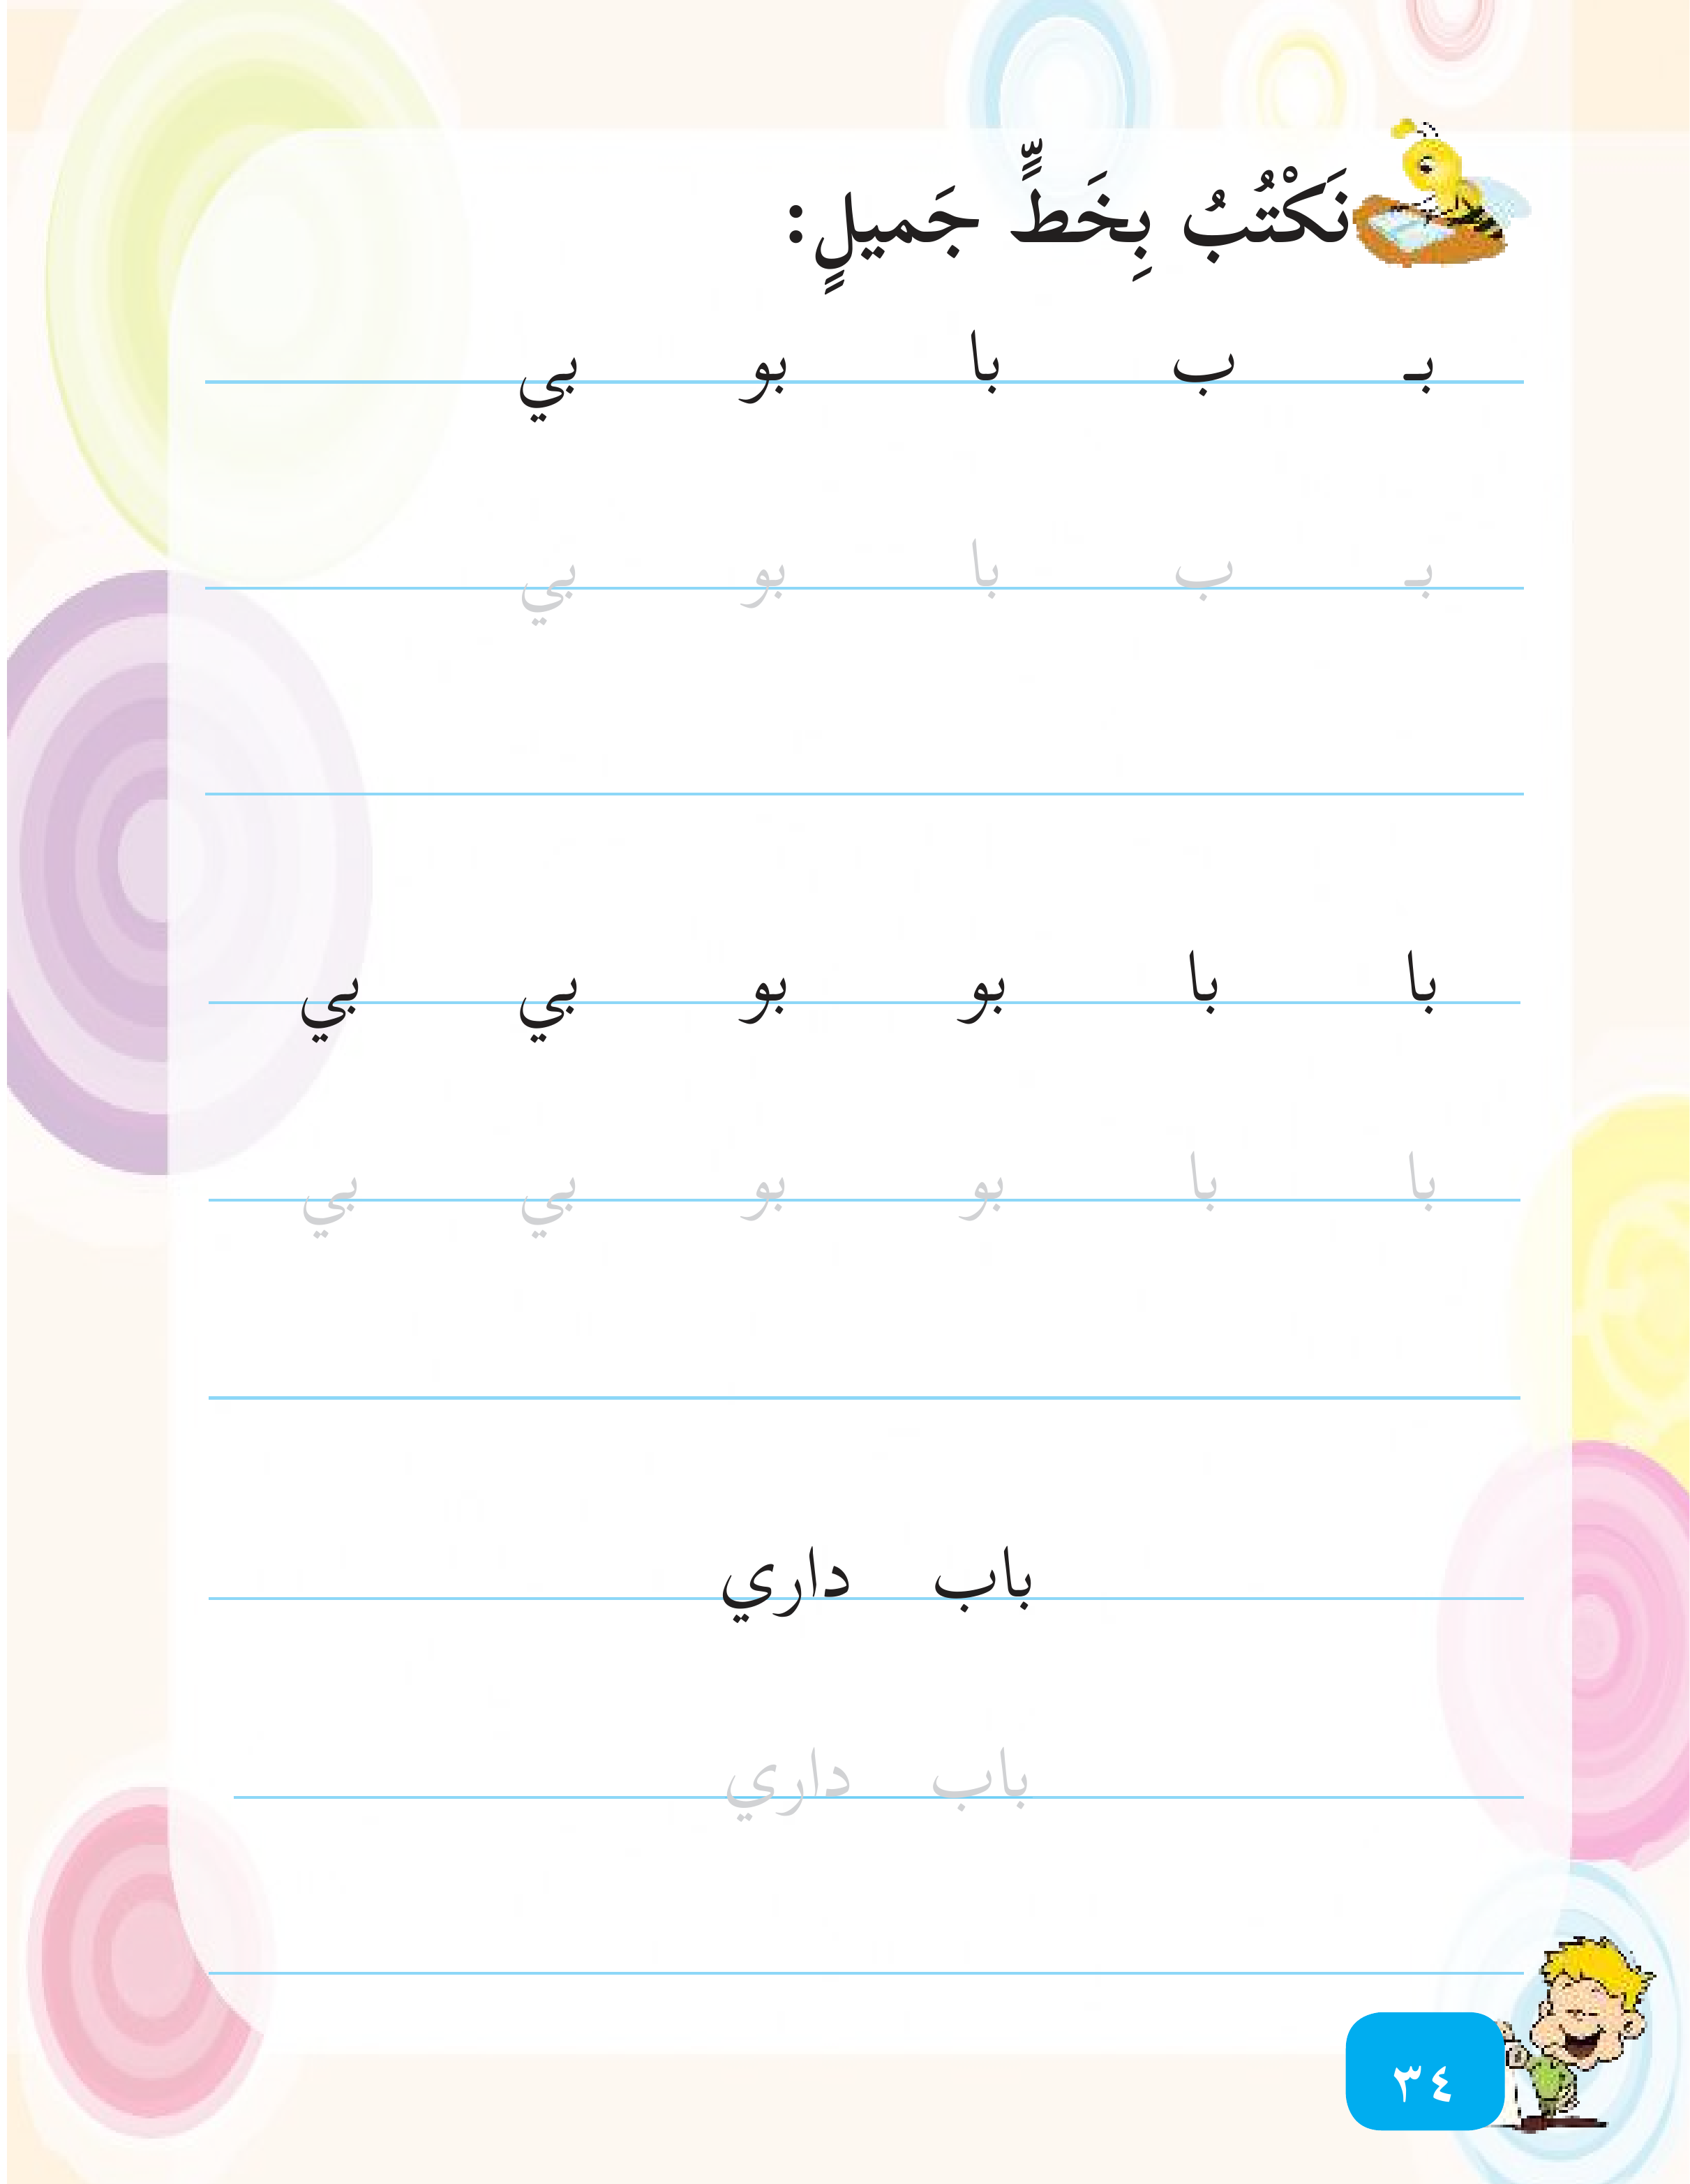 نَكْتُبُ بِخَطٍّ جَميلٍ:
بـ ب با بو بي
بـ ب با بو بي
با با بو بو بي بي
با با بو بو بي بي
باب داري
باب داري
٣٤